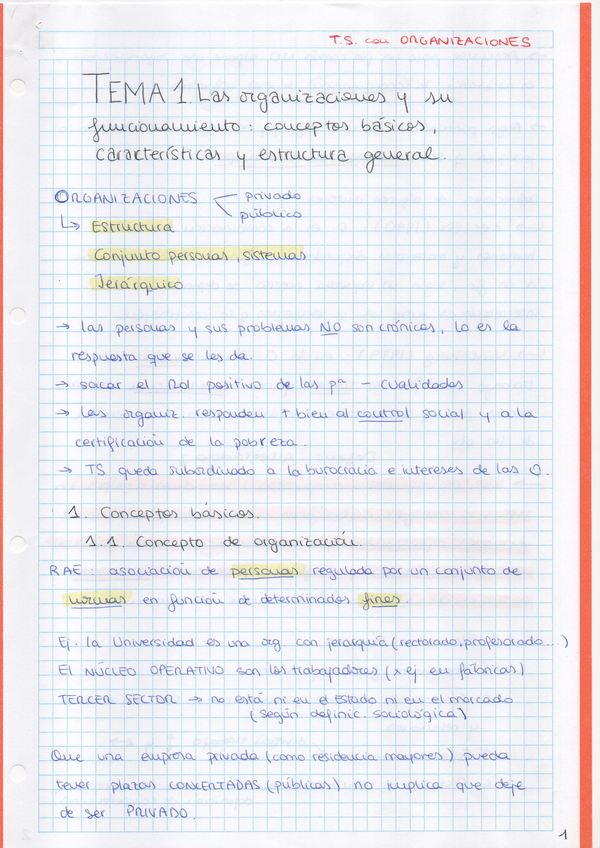 T.S. con ORGANIZACIONES
TEMA 1. Las organizaciones y su
funcionamiento: conceptos básicos,
características y estructura general.
ORGANIZACIONES privado
público
↳ Estructura
Conjunto personas, sistemas
Jerárquico
→ las personas y sus problemas NO son crónicos, lo es la
respuesta que se les da.
→ sacar el Rol positivo de las pª - cualidades
→ Las organiz. responden + bien al control social y a la
certificación de la pobreza.
→ TS queda subordinado a la burocracia e intereses de las O.
1. Conceptos básicos.
1.1. Concepto de organización.
RAE: asociación de personas regulada por un conjunto de
normas en función de determinados fines.
Ej. la Universidad es una org. con jerarquía (rectorado, profesorado...)
El NÚCLEO OPERATIVO son los trabajadores (x ej en fábricas)
TERCER SECTOR → no está ni en el Estado ni en el mercado
(según definic. sociológica)
Que una empresa privada (como residencia mayores) pueda
tener plazas CONCERTADAS (públicas) no implica que deje
de ser PRIVADO.
1